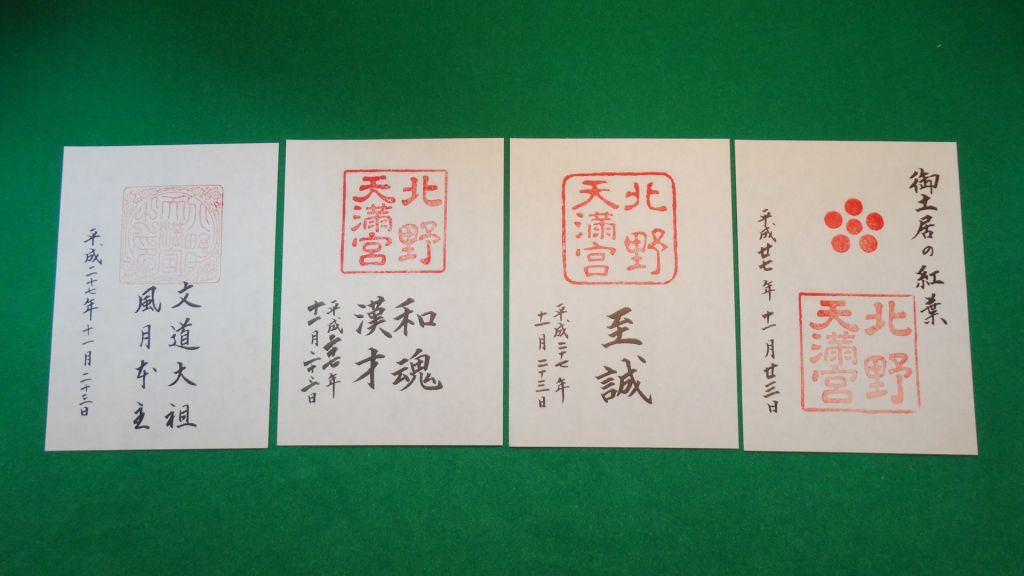 文道大祖
風月本主
平成二十七年十一月二十三日
北野
天満宮
和魂
漢才
平成二十七年
十一月二十三日
北野
天満宮
至誠
平成二十七年
十一月二十三日
御土居の紅葉
北野
天満宮
平成廿七年十一月廿三日